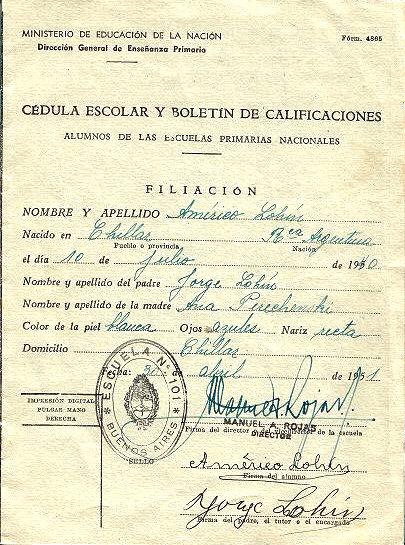 MINISTERIO DE EDUCACIÓN DE LA NACIÓN
Dirección General de Enseñanza Primaria
Fórm. 4865
CÉDULA ESCOLAR Y BOLETÍN DE CALIFICACIONES
ALUMNOS DE LAS ESCUELAS PRIMARIAS NACIONALES
FILIACIÓN
NOMBRE Y APELLIDO Américo Lohín
Nacido en Chillar Rca Argentina
Pueblo o provincia Nación
el día 10 de Julio de 1940
Nombre y apellido del padre Jorge Lohín
Nombre y apellido de la madre Ana
Color de la piel blanca Ojos azules Nariz recta
Domicilio Chillar
abril de 1951
IMPRESIÓN DIGITAL
PULGAR MANO
DERECHA
ESCUELA N. 101
BUENOS AIRES
SELLO
Manuel Rojas
MANUEL A. ROJAS
DIRECTOR
Firma del director o del vicedirector de la escuela
Américo Lohin
Firma del alumno
Jorge Lohín
Firma del padre, el tutor o el encargado